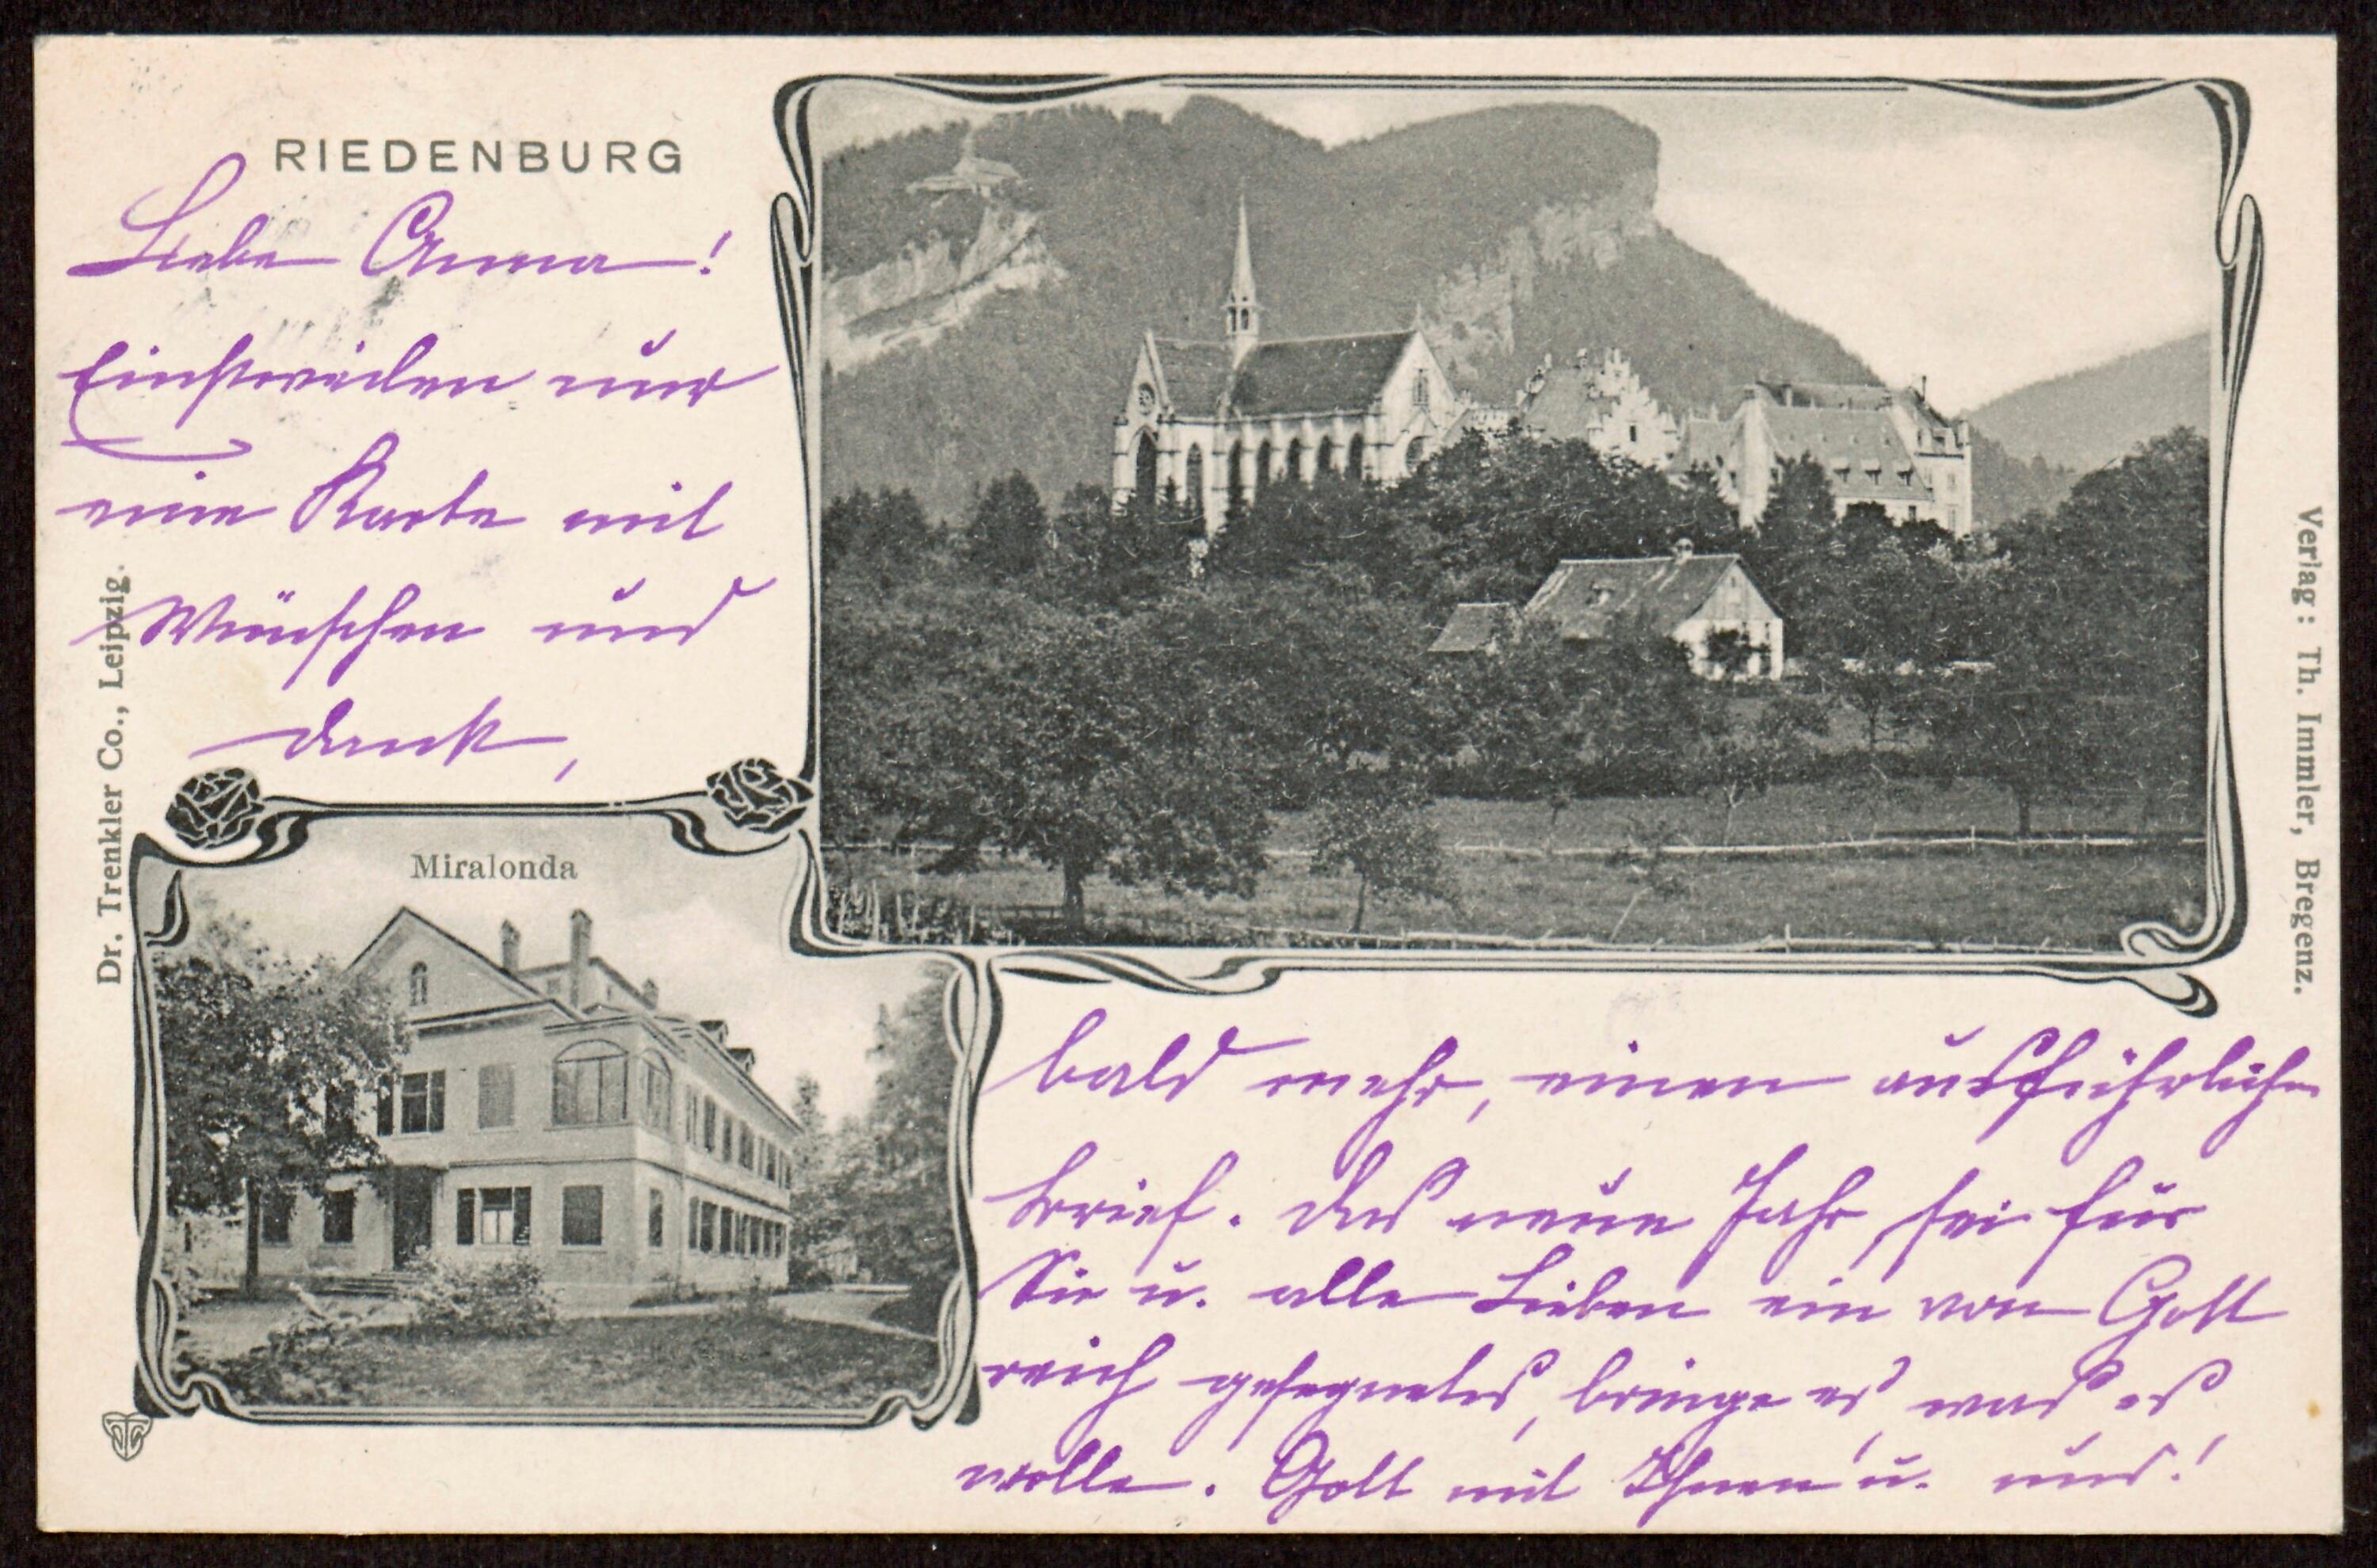 RIEDENBURG
Liebe Anna!
Einstweilen nur
eine Karte mit
Wünschen und
Dank,
Miralonda
bald mehr, einen ausführlichen
Brief. Das neue Jahr sei für
Sie u. alle Lieben ein von Gott
reich gesegnetes, bringe es, was es
wolle. Gott mit Ihnen u. uns!
Dr. Trenkler Co., Leipzig.
Verlag: Th. Immler, Bregenz.